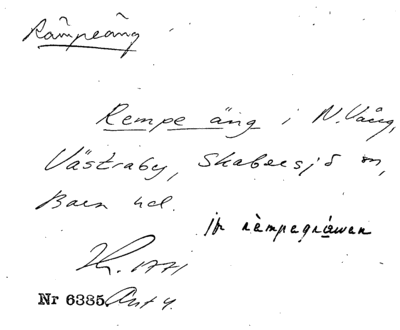 Rämpeäng
Rempe äng i N. Vång,
Västraby, Skabersjö sn,
Bara hd.
jfr rèmpegrɩ́awan
Nr 6385. Ant 4.